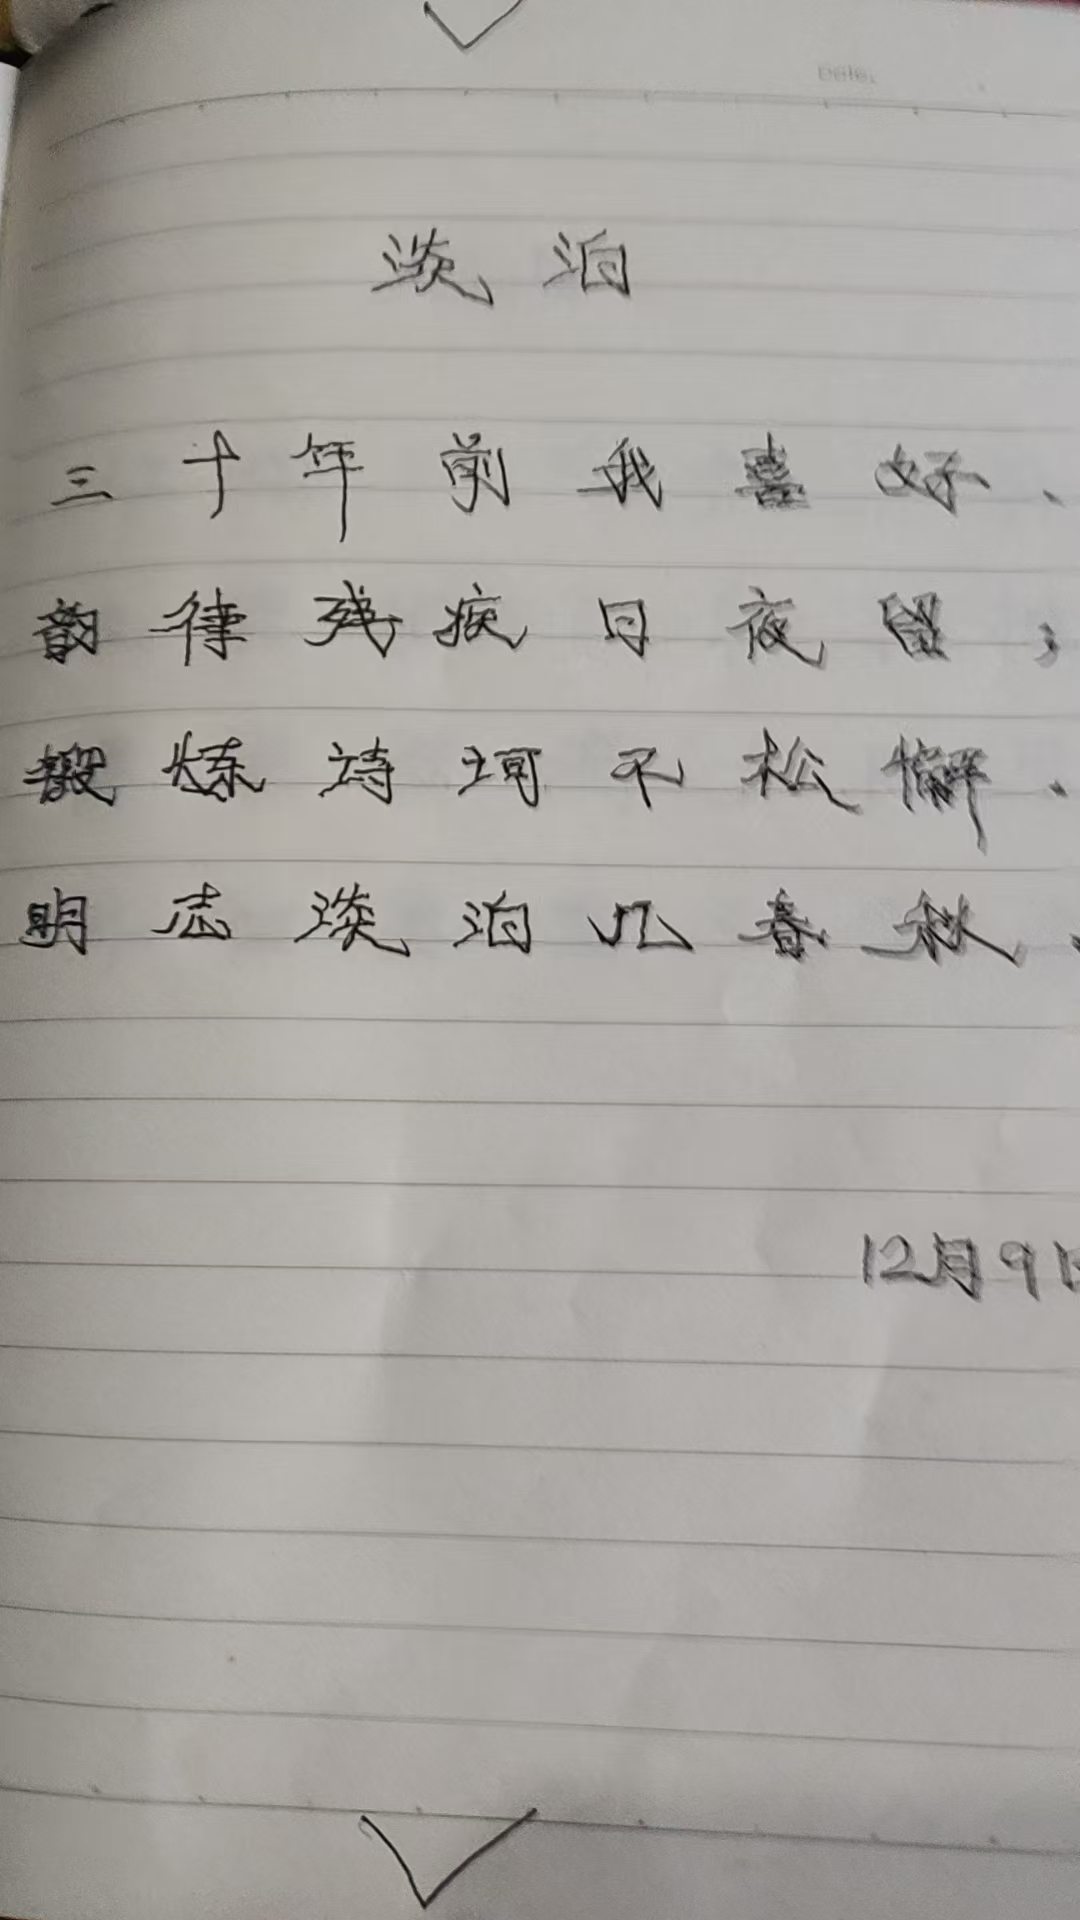 Date.
淡泊
三十年前我喜好、
韵律残疾日夜留；
锻炼诗词不松懈、
明志淡泊几春秋、
12月9日